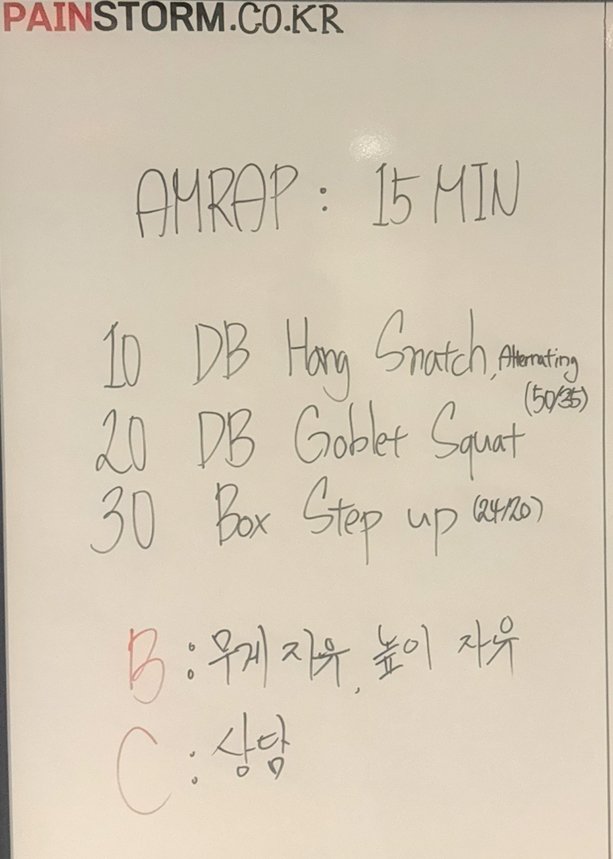 PAINSTORM.CO.KR
AMRAP : 15 MIN
10 DB Hang Snatch, Alternating
(50/35)
20 DB Goblet Squat
30 Box Step up (24/20)
B : 무게 자유, 높이 자유
C : 상담